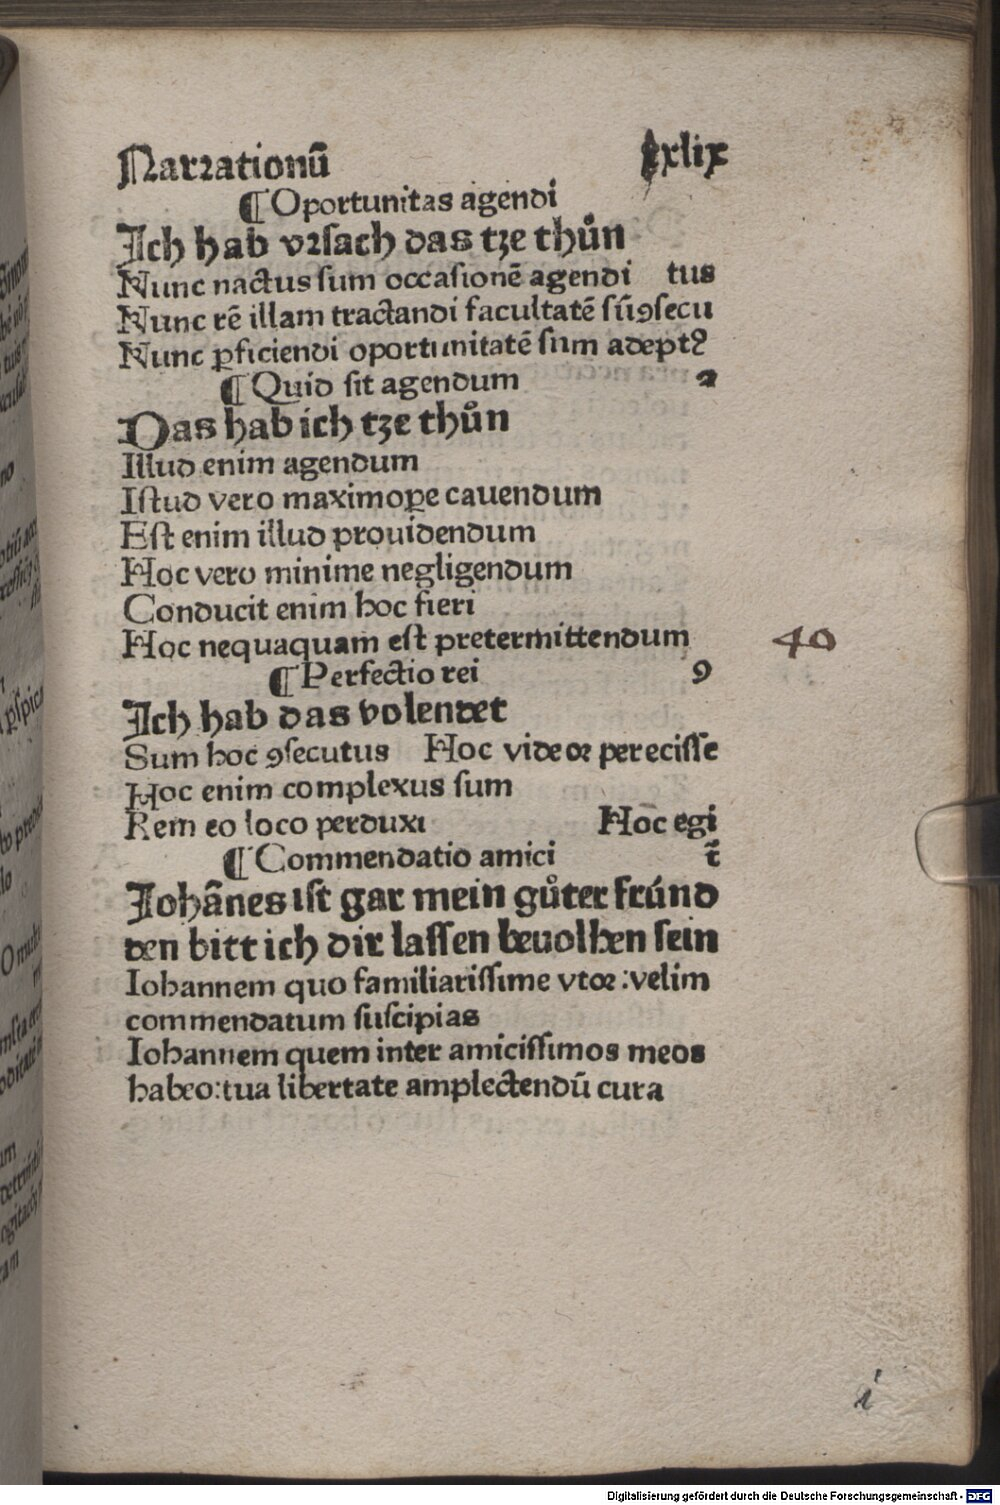 Narrationū xxlix
¶Oportunitas agendi
Ich hab vrſach das tze thůn
Nunc nactus ſum occaſionē agendi tus
Nunc rē illam tractandi facultatē ſū ꝯſecu
Nunc ꝑficiendi oportunitatē ſum adeptꝰ
¶Quid ſit agendum
Das hab ich tze thůn
Illud enim agendum
Iſtud vero maximoꝑe cauendum
Eſt enim illud prouidendum
Hoc vero minime negligendum
Conducit enim hoc fieri
Hoc nequaquam eſt pretermittendum 40
¶Perfectio rei ꝯ
Ich hab das volendet
Sum hoc ꝯſecutus Hoc videor pereciſſe
Hoc enim complexus ſum
Rem eo loco perduxi Hoc egi
¶Commendatio amici t̄
Iohānes iſt gar mein gůter frúnd
den bitt ich dir laſſen beuolhen ſein
Iohannem quo familiariſſime vtor:velim
commendatum ſuſcipias
Iohannem quem inter amiciſſimos meos
habeo:tua libertate amplectendū cura
i
Digitalisierung gefördert durch die Deutsche Forschungsgemeinschaft - DFG